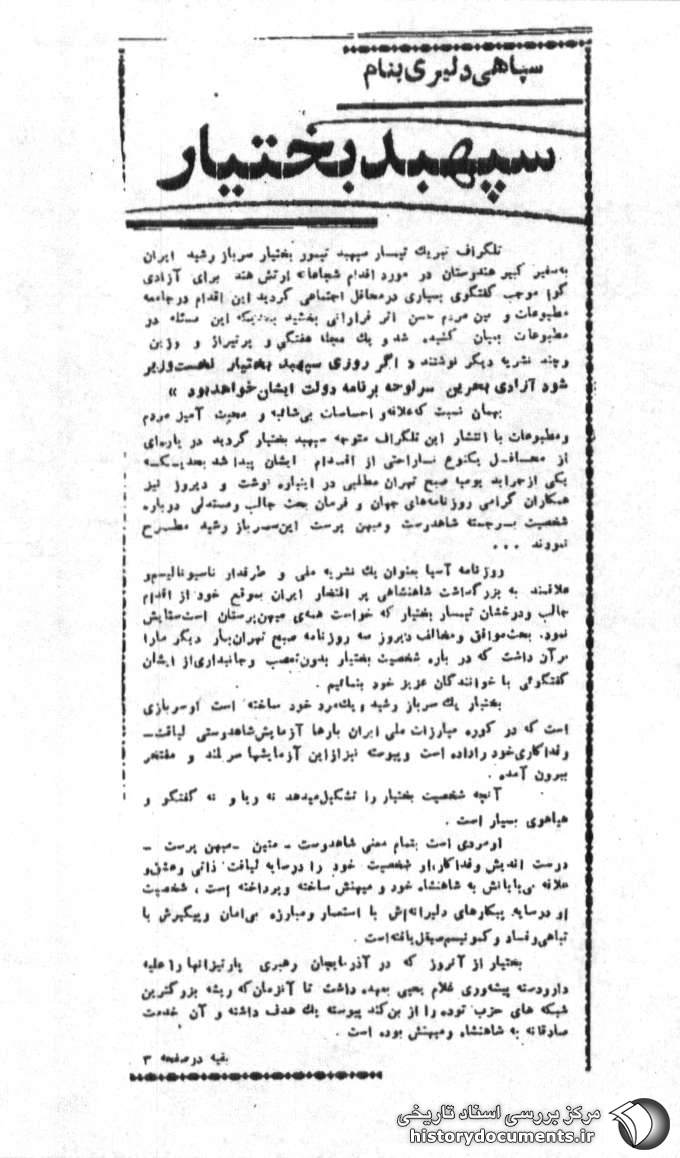 سپاهی دلیری بنام
سپهبد بختیار
تلگراف تبریك تیمسار سپهبد تیمور بختیار سرباز رشید ایران
به سفیر کبیر هندوستان در مورد اقدام شجاعانه ارتش هند برای آزادی
گوا موجب گفتگوی بسیاری در محافل اجتماعی گردید این اقدام در جامعه
مطبوعات و بین مردم حسن اثر فراوانی بخشید بطوریکه این مسئله در
مطبوعات بمیان کشیده شد و یك مجله هفتگی و پرتیراژ و وزین
و چند نشریه دیگر نوشتند « اگر روزی سپهبد بختیار نخست وزیر
شود آزادی بحرین سرلوحه برنامه دولت ایشان خواهد بود »
بهمان نسبت که علاقه و احساسات بی شائبه و محبت آمیز مردم
و مطبوعات با انتشار این تلگراف متوجه سپهبد بختیار گردید در پاره‌ای
از محافل یکنوع ناراحتی از اقدام ایشان پیدا شد بحدیکه
یکی از جراید یومیه صبح تهران مطلبی در اینباره نوشت و دیروز نیز
همکاران گرامی روزنامه‌های جهان و فرمان بحث جالب و مستدلی درباره
شخصیت برجسته شاهدوست و میهن پرست این سرباز رشید مطرح
نمودند . . .
روزنامه آسیا بعنوان یك نشریه ملی و طرفدار ناسیونالیسم و
علاقمند به بزرگداشت شاهنشاهی پر افتخار ایران بموقع خود از اقدام
جالب و درخشان تیمسار بختیار که خواست همه‌ی میهن پرستان است ستایش
نمود. بحث موافق و مخالف دیروز سه روزنامه صبح تهران بار دیگر ما را
بر آن داشت که در باره شخصیت بختیار بدون تعصب و جانبداری از ایشان
گفتگوئی با خوانندگان عزیز خود بنمائیم .
بختیار یك سرباز رشید و یك مرد خود ساخته است او سربازی
است که در کوره مبارزات ملی ایران بارها آزمایش شاهدوستی لیاقت ـ
و فداکاری خود را داده است و پیوسته نیز از این آزمایشها سربلند و مفتخر
بیرون آمده .
آنچه شخصیت بختیار را تشکیل میدهد نه ریا و نه گفتگو و
هیاهوی بسیار است .
او مردی است بتمام معنی شاهدوست ـ متین ـ میهن پرست ـ
درست اندیش و فداکار. او شخصیت خود را در سایه لیاقت ذاتی و عشق و
علاقه بی پایانش به شاهنشاه خود و میهنش ساخته و پرداخته است ، شخصیت
او در سایه پیکارهای دلیرانه‌اش با استعمار و مبارزه بی‌امان و پیگیرش با
تباهی و فساد و کمونیسم صیقل یافته است .
بختیار از آنروز که در آذربایجان رهبری پارتیزانها را علیه
دارودسته پیشه‌وری غلام یحیی بعهده داشت تا آنزمان که ریشه بزرگترین
شبکه های حزب توده را از بن کند پیوسته یك هدف داشته و آن خدمت
صادقانه به شاهنشاه و میهنش بوده است .
بقیه در صفحه ۳
مرکز بررسی اسناد تاریخی
historydocuments.ir